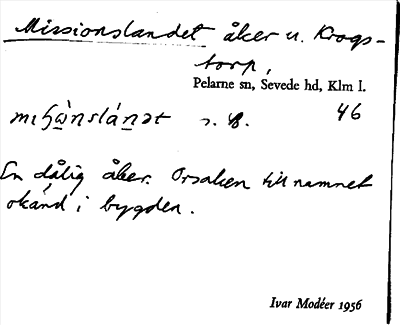 Missionslandet åker u. Krogs-
torp,
Pelarne sn, Sevede hd, Klm l.
46
mɩʃ(ὼ)nslánət s. B.
En dålig åker. Orsaken till namnet
okänd i bygden.
Ivar Modéer 1956